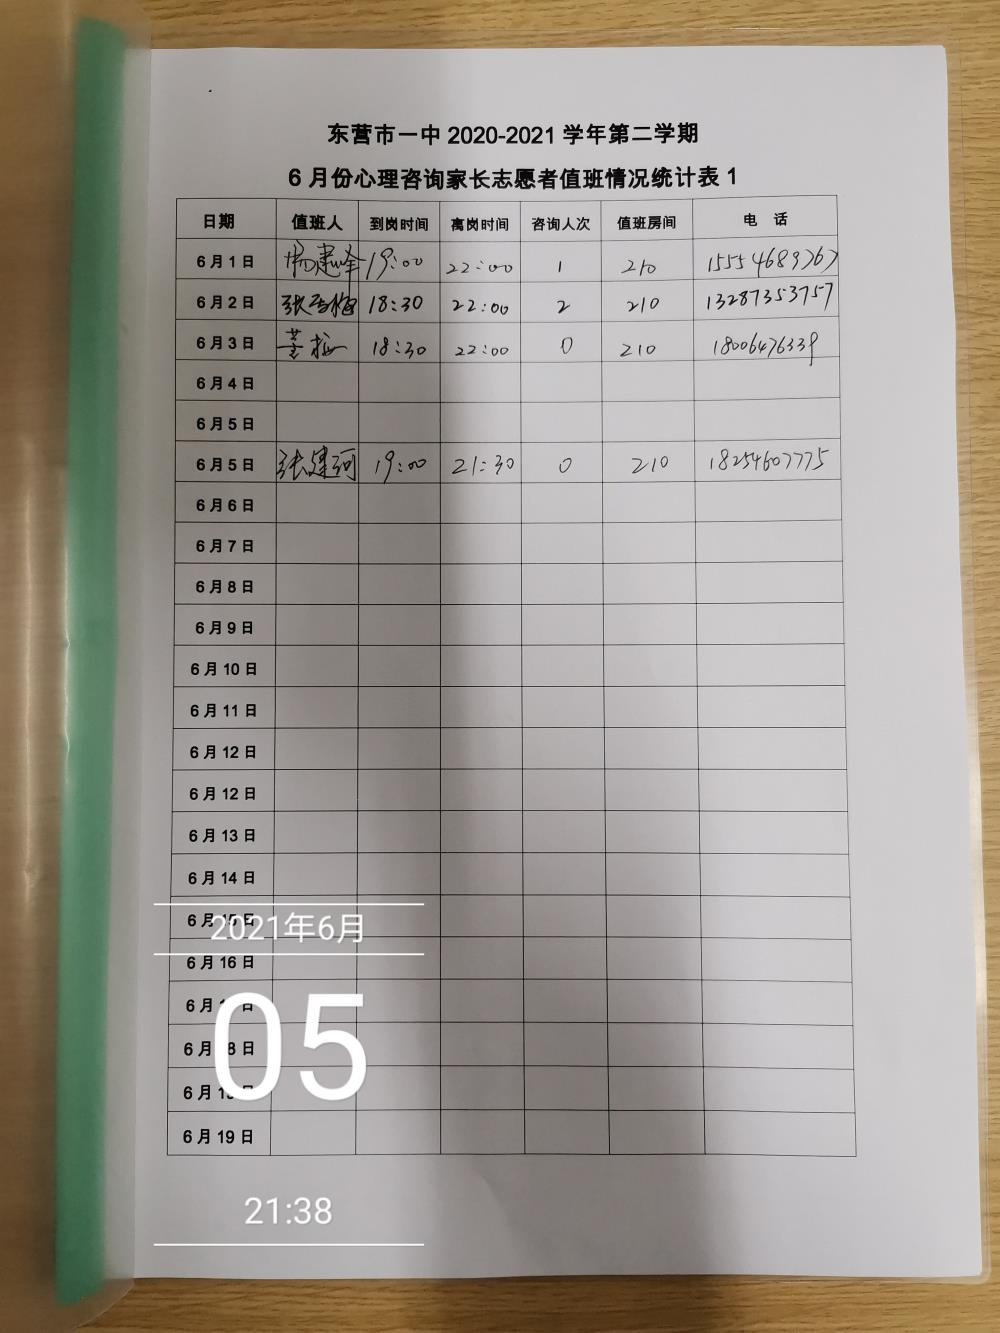 东营市一中 2020-2021 学年第二学期
6 月份心理咨询家长志愿者值班情况统计表 1
日期 值班人 到岗时间 离岗时间 咨询人次 值班房间 电 话
6 月 1 日 杨建峰 19:00 22:00 1 210 15554689767
6 月 2 日 18:30 22:00 2 210 13287353757
6 月 3 日 18:30 22:00 0 210 18006476339
6 月 4 日
6 月 5 日
6 月 5 日 张建河 19:00 21:30 0 210 18254607775
6 月 6 日
6 月 7 日
6 月 8 日
6 月 9 日
6 月 10 日
6 月 11 日
6 月 12 日
6 月 12 日
6 月 13 日
6 月 14 日
6 月 15 日
2021年6月
6 月 16 日
6 月 1 日
05
6 月 8 日
6 月 1 日
6 月 19 日
21:38